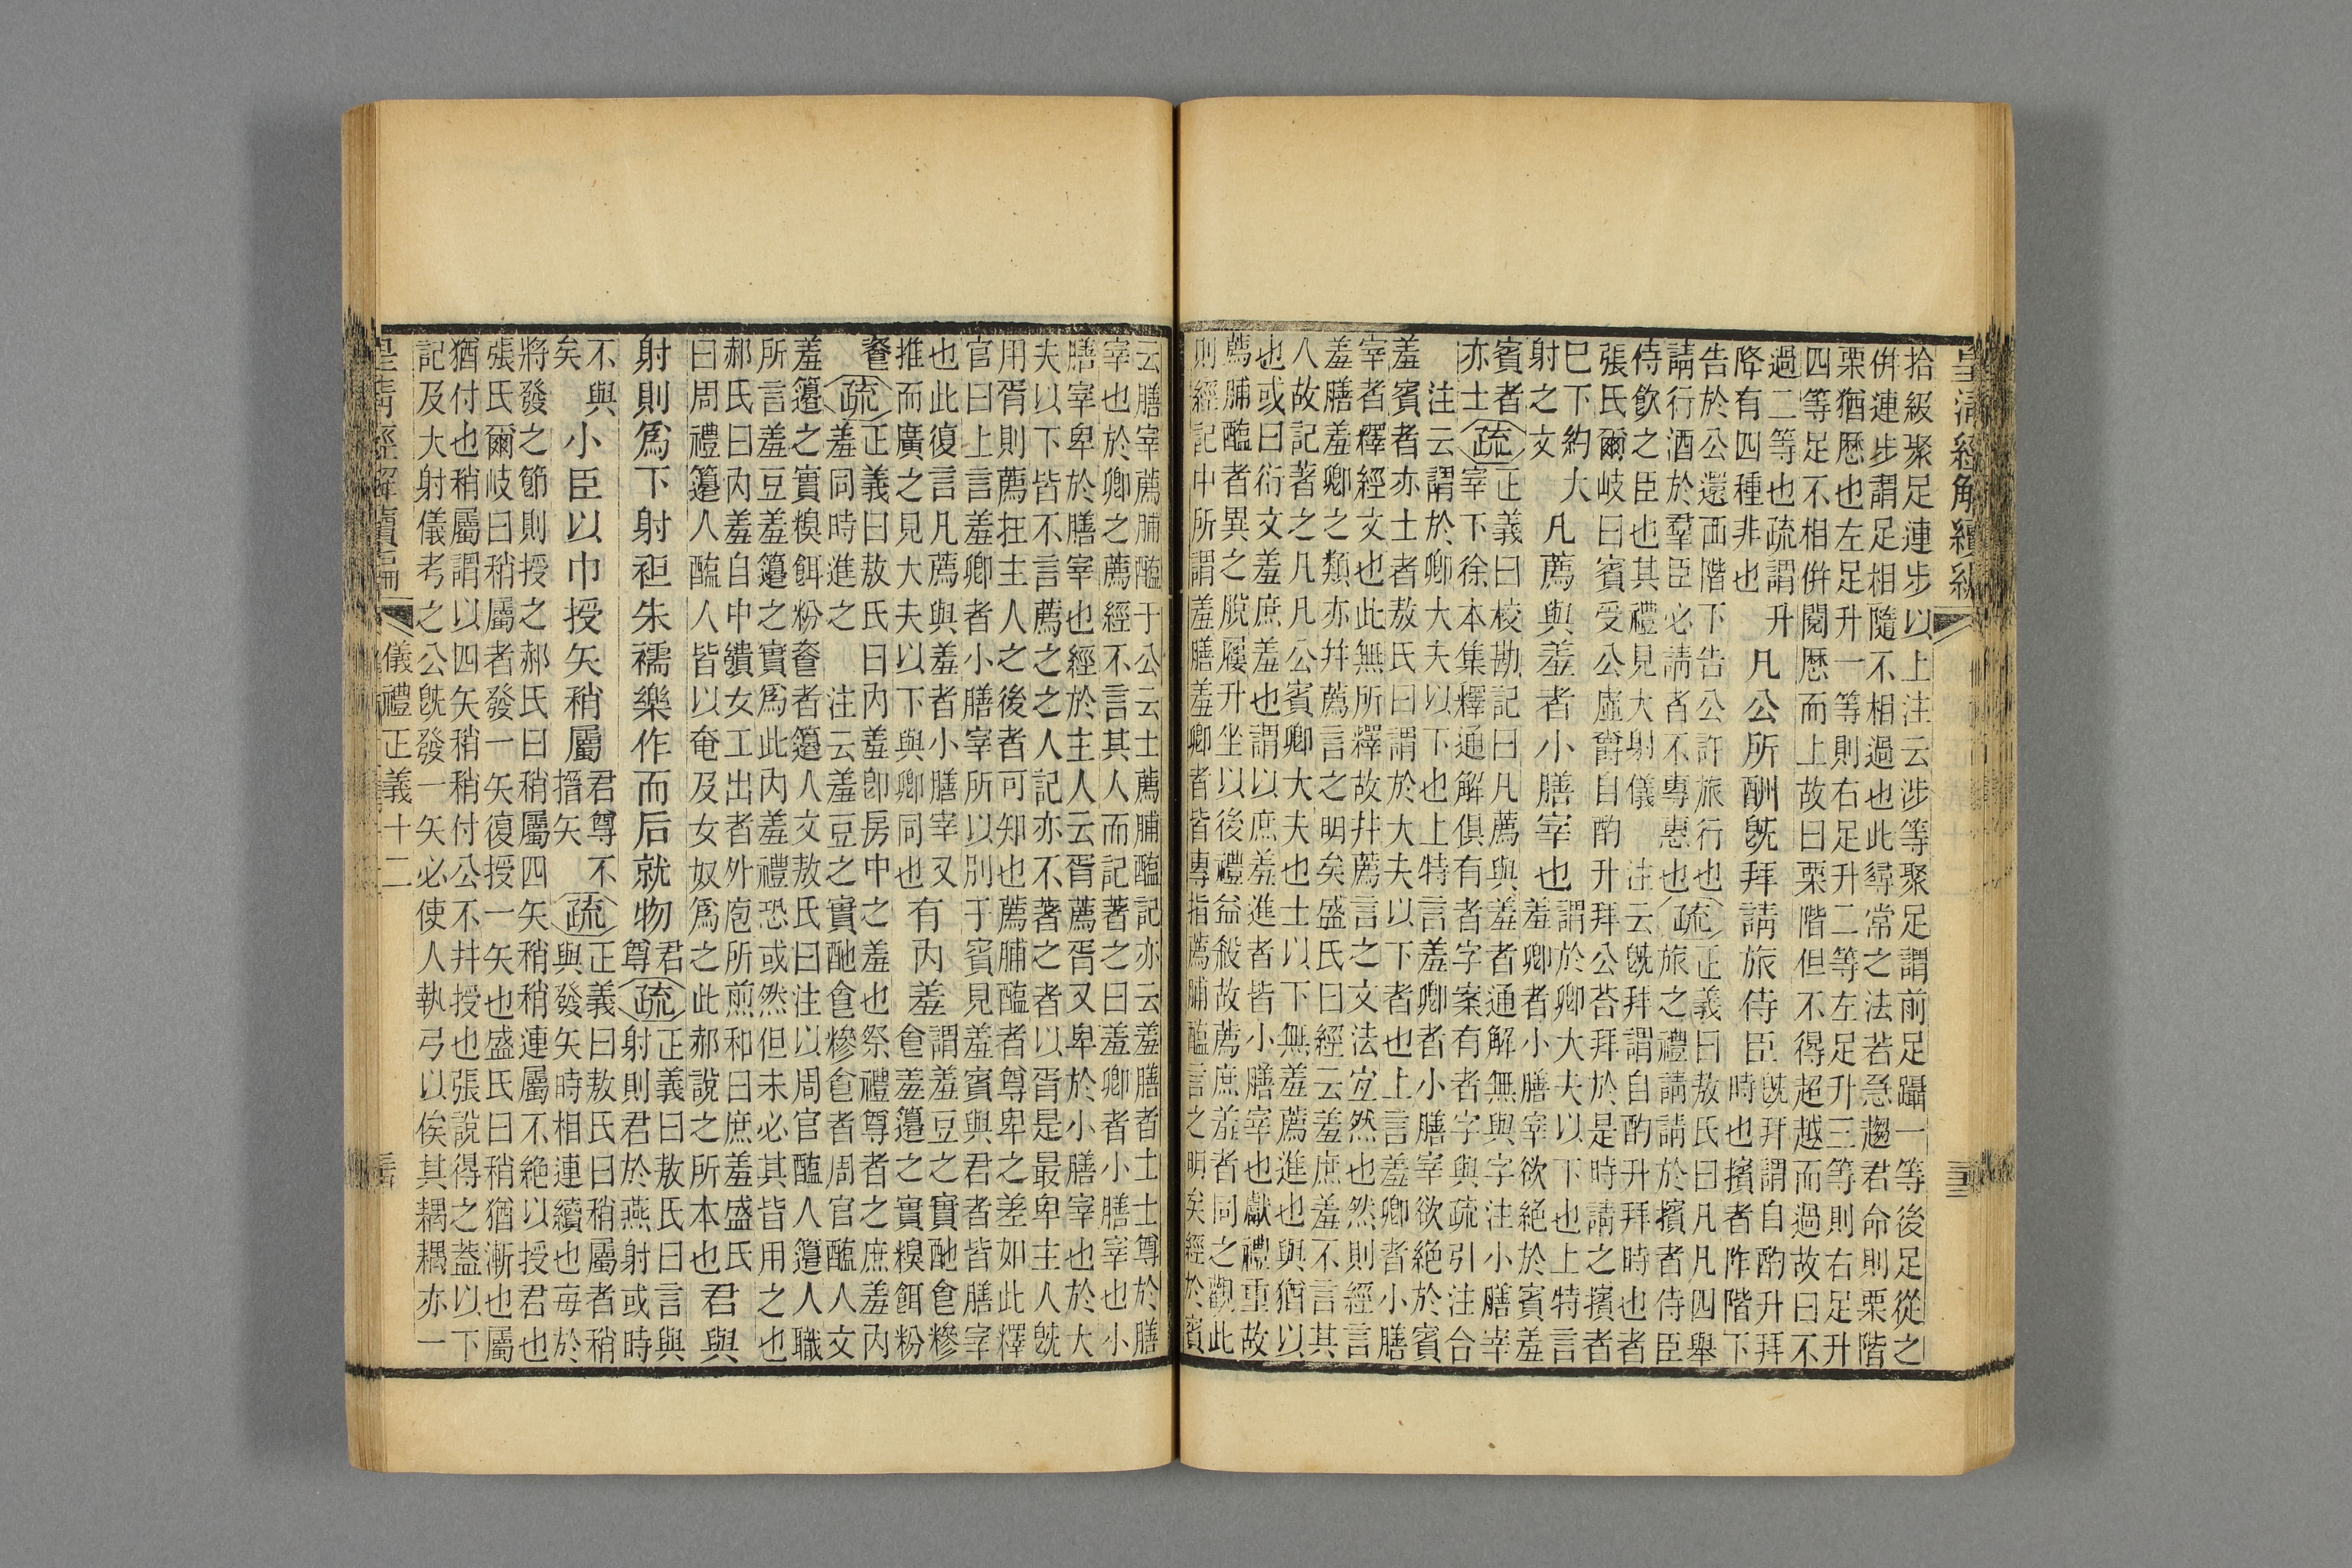 皇清經解續編
拾級聚足連步以上注云涉等聚足謂前足躡一等後足從之
併連步謂足相隨不相過也此尋常之法若急趨君命則栗階
栗猶歷也左足升一等則右足升二等左足升三等則右足升
四等足不相併閱歷而上故曰栗階但不得超越而過故曰不
過二等也疏謂升
降有四種非也
凡公所酬旣拜請旅侍臣
旣拜謂自酌升拜
時也擯者阼階下
告於公還西階下告公許旅行也疏正義曰敖氏曰凡凡四舉
請行酒於羣臣必請者不專惠也旅之禮請請於擯者侍臣
侍飮之臣也其禮見大射儀 注云旣拜謂自酌升拜時也者
張氏爾岐曰賓受公虛爵自酌升拜公荅拜於是時請之擯者
巳下約大
射之文
凡薦與羞者小膳宰也
謂於卿大夫以下也上特言
羞卿者小膳宰欲絕於賓羞
賓者
亦士
疏
正義曰校勘記曰凡薦與羞者通解無與字注小膳宰
宰下徐本集釋通解俱有者字案有者字與疏引注合
注云謂於卿大夫以下也上特言羞卿者小膳宰欲絕於賓
羞賓者亦士者敖氏曰謂於大夫以下者也上言羞卿者小膳
宰者釋經文也此無所釋故幷薦言之文法宜然也然則經言
羞膳羞卿之類亦幷薦言之明矣盛氏曰經云羞庶羞不言其
人故記著之凡凡公賓卿大夫也士以下無羞薦進也與猶以
也或曰衍文羞庶羞也謂以庶羞進者皆小膳宰也獻禮重故
薦脯醢者異之脫屨升坐以後禮益殺故薦庶羞者同之觀此
則經記中所謂羞膳羞卿者皆專指薦脯醢言之明矣經於賓
云膳宰薦脯醢于公云士薦脯醢記亦云羞膳者士士尊於膳
宰也於卿之薦經不言其人而記著之曰羞卿者小膳宰也小
膳宰卑於膳宰也經於主人云胥薦胥又卑於小膳宰也於大
夫以下皆不言薦之之人記亦不著之者以胥是最卑主人旣
用胥則薦在主人之後者可知也薦脯醢者尊卑之差如此釋
官曰上言羞卿者小膳宰所以別于賓見羞賓與君者皆膳宰
也此復言凡薦與羞者小膳宰又
推而廣之見大夫以下與卿同也
有內羞
謂羞豆之實酏食糝
食羞籩之實糗餌粉
餈
疏
正義曰敖氏曰內羞卽房中之羞也祭禮尊者之庶羞內
羞同時進之 注云羞豆之實酏食糝食者周官醢人文
羞籩之實糗餌粉餈者籩人文敖氏曰注以周官醢人籩人職
所言羞豆羞籩之實爲此內羞禮恐或然但未必其皆用之也
郝氏曰內羞自中饋女工出者外庖所煎和曰庶羞盛氏
曰周禮籩人醢人皆以奄及女奴爲之此郝說之所本也
君與
射則爲下射袒朱襦樂作而后就物
君
尊
疏
正義曰敖氏曰言與
射則君於燕射或時
不與
矣
小臣以巾授矢稍屬
君尊不
搢矢
疏
正義曰敖氏曰稍屬者稍
與發矢時相連續也每於
將發之節則授之郝氏曰稍屬四矢稍稍連屬不絕以授君也
張氏爾岐曰稍屬者發一矢復授一矢也盛氏曰稍猶漸也屬
猶付也稍屬謂以四矢稍稍付公不幷授也張說得之葢以下
記及大射儀考之公旣發一矢必使人執弓以俟其耦耦亦一
皇清經解續編 儀禮正義十二